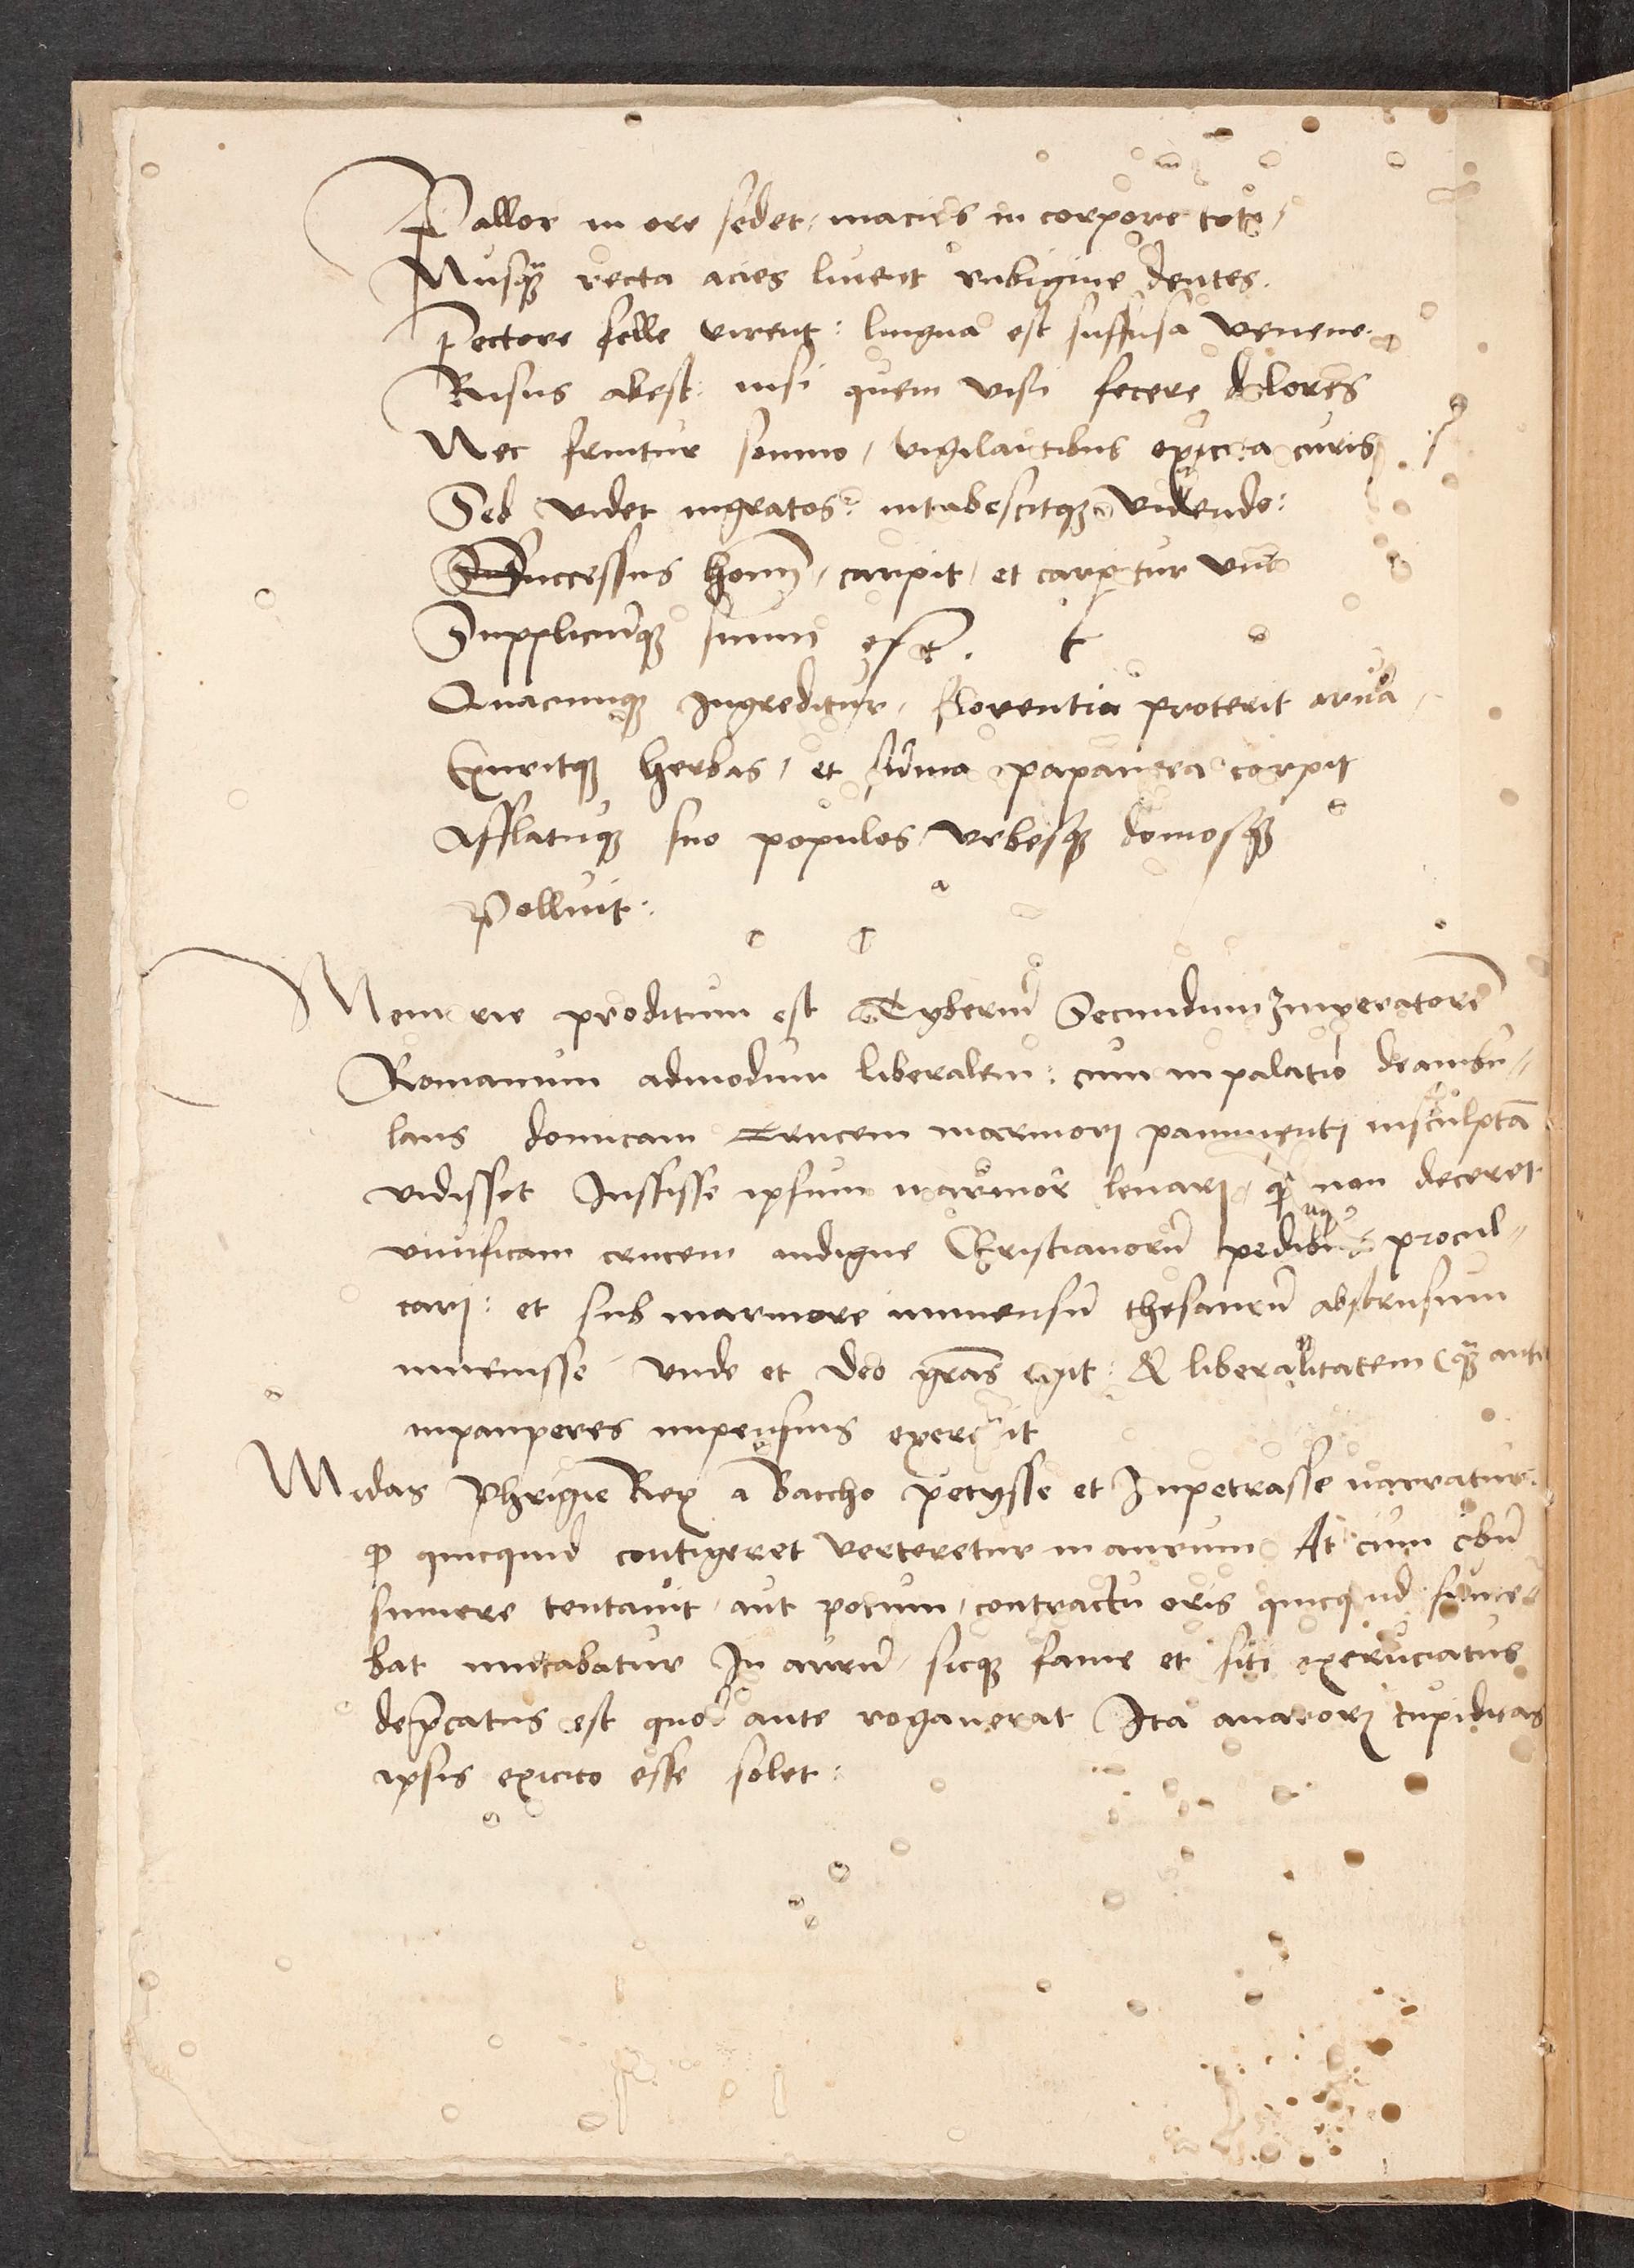 Pallor in ore sedet, macies in corpore toto,
Nusqꝫ recta acies liuent rubigine dentes.
Pectore felle virent: lingua est suffusa veneno.
Risus abest: nisi quem visi fecere dolores
Nec fruitur somno, vigilantibus excita curis
Sed videt ingratos: intabescitqꝫ videndo:
Successus homī, carpit, et carpitur vna
Suppliciūqꝫ suum est.
Quacumqꝫ Ingreditur, florentia proterit arua,
Exuritqꝫ herbas, et sūma papauera carpit
Afflatuqꝫ suo populos vrbesqꝫ domosqꝫ
Polluit:
Memorie proditum est Tyberiū Secundum Imperatorē
Romanum admodum liberalem: cum in palatio deambu-
lans domicam Crucem marmorj pauimentj insculptā
vidisset Iussisse ipsum marmor leuarj, ꝙ non deceret
viuificam crucem indigne Christianorū pedibus procul-
carj: et sub marmore immensū thesaurū abstrusum
inuenisse, vnde et deo grās egit: & liberalitatem quā ante
in pauperes impensius exercuit
Midas Phrigie Rex a Baccho petysse et Inpetrasse narratur.
ꝙ quicquid contigeret verteretur in aurum At cum cibū
sumere tentauit, aut potum, contractu oris quicquid sume-
bat mutabatur In aurū, sicqꝫ fame et siti excruciatus
dep̄catus est quod ante rogauerat Ita auarorꝫ cupiditas
ipsis exicio esse solet: